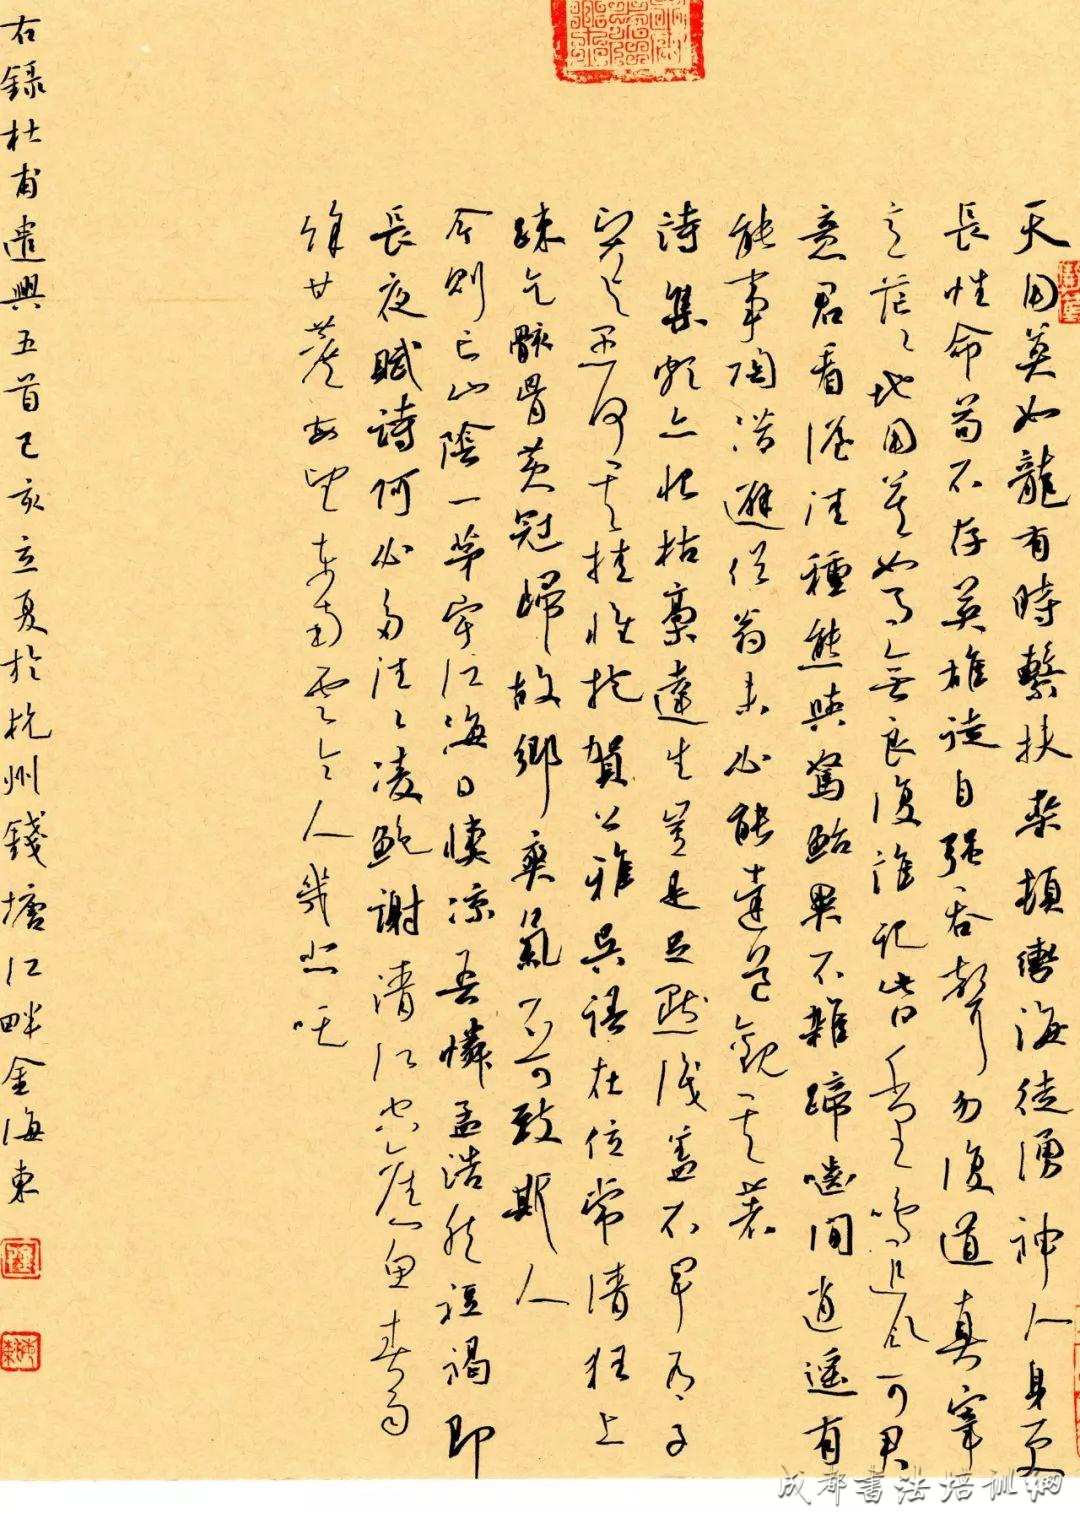 天用莫如龍有時繫扶桑頓轡海徒湧神人身更
長性命苟不存英雄徒自強吞聲勿復道真宰
意茫々地用莫如馬無良復誰記此日千里鳴追風可君
意君看渥洼種態與駑駘異不雜蹄嚙間逍遙有
能事陶潛避俗翁未必能達道觀其著
詩集頗亦恨枯槁達生豈是足默識蓋不早有子
賢與愚何其挂懷抱賀公雅吳語在位常清狂上
疎乞骸骨黃冠歸故鄉爽氣不可致斯人
今則亡山陰一茅宇江海日悽涼吾憐孟浩然裋褐即
長夜賦詩何必多往々凌鮑謝清江空舊魚春雨
餘甘蔗每望東南雲令人幾悲吒
右錄杜甫遣興五首己亥立夏於杭州錢塘江畔金海東
成都書法培训網